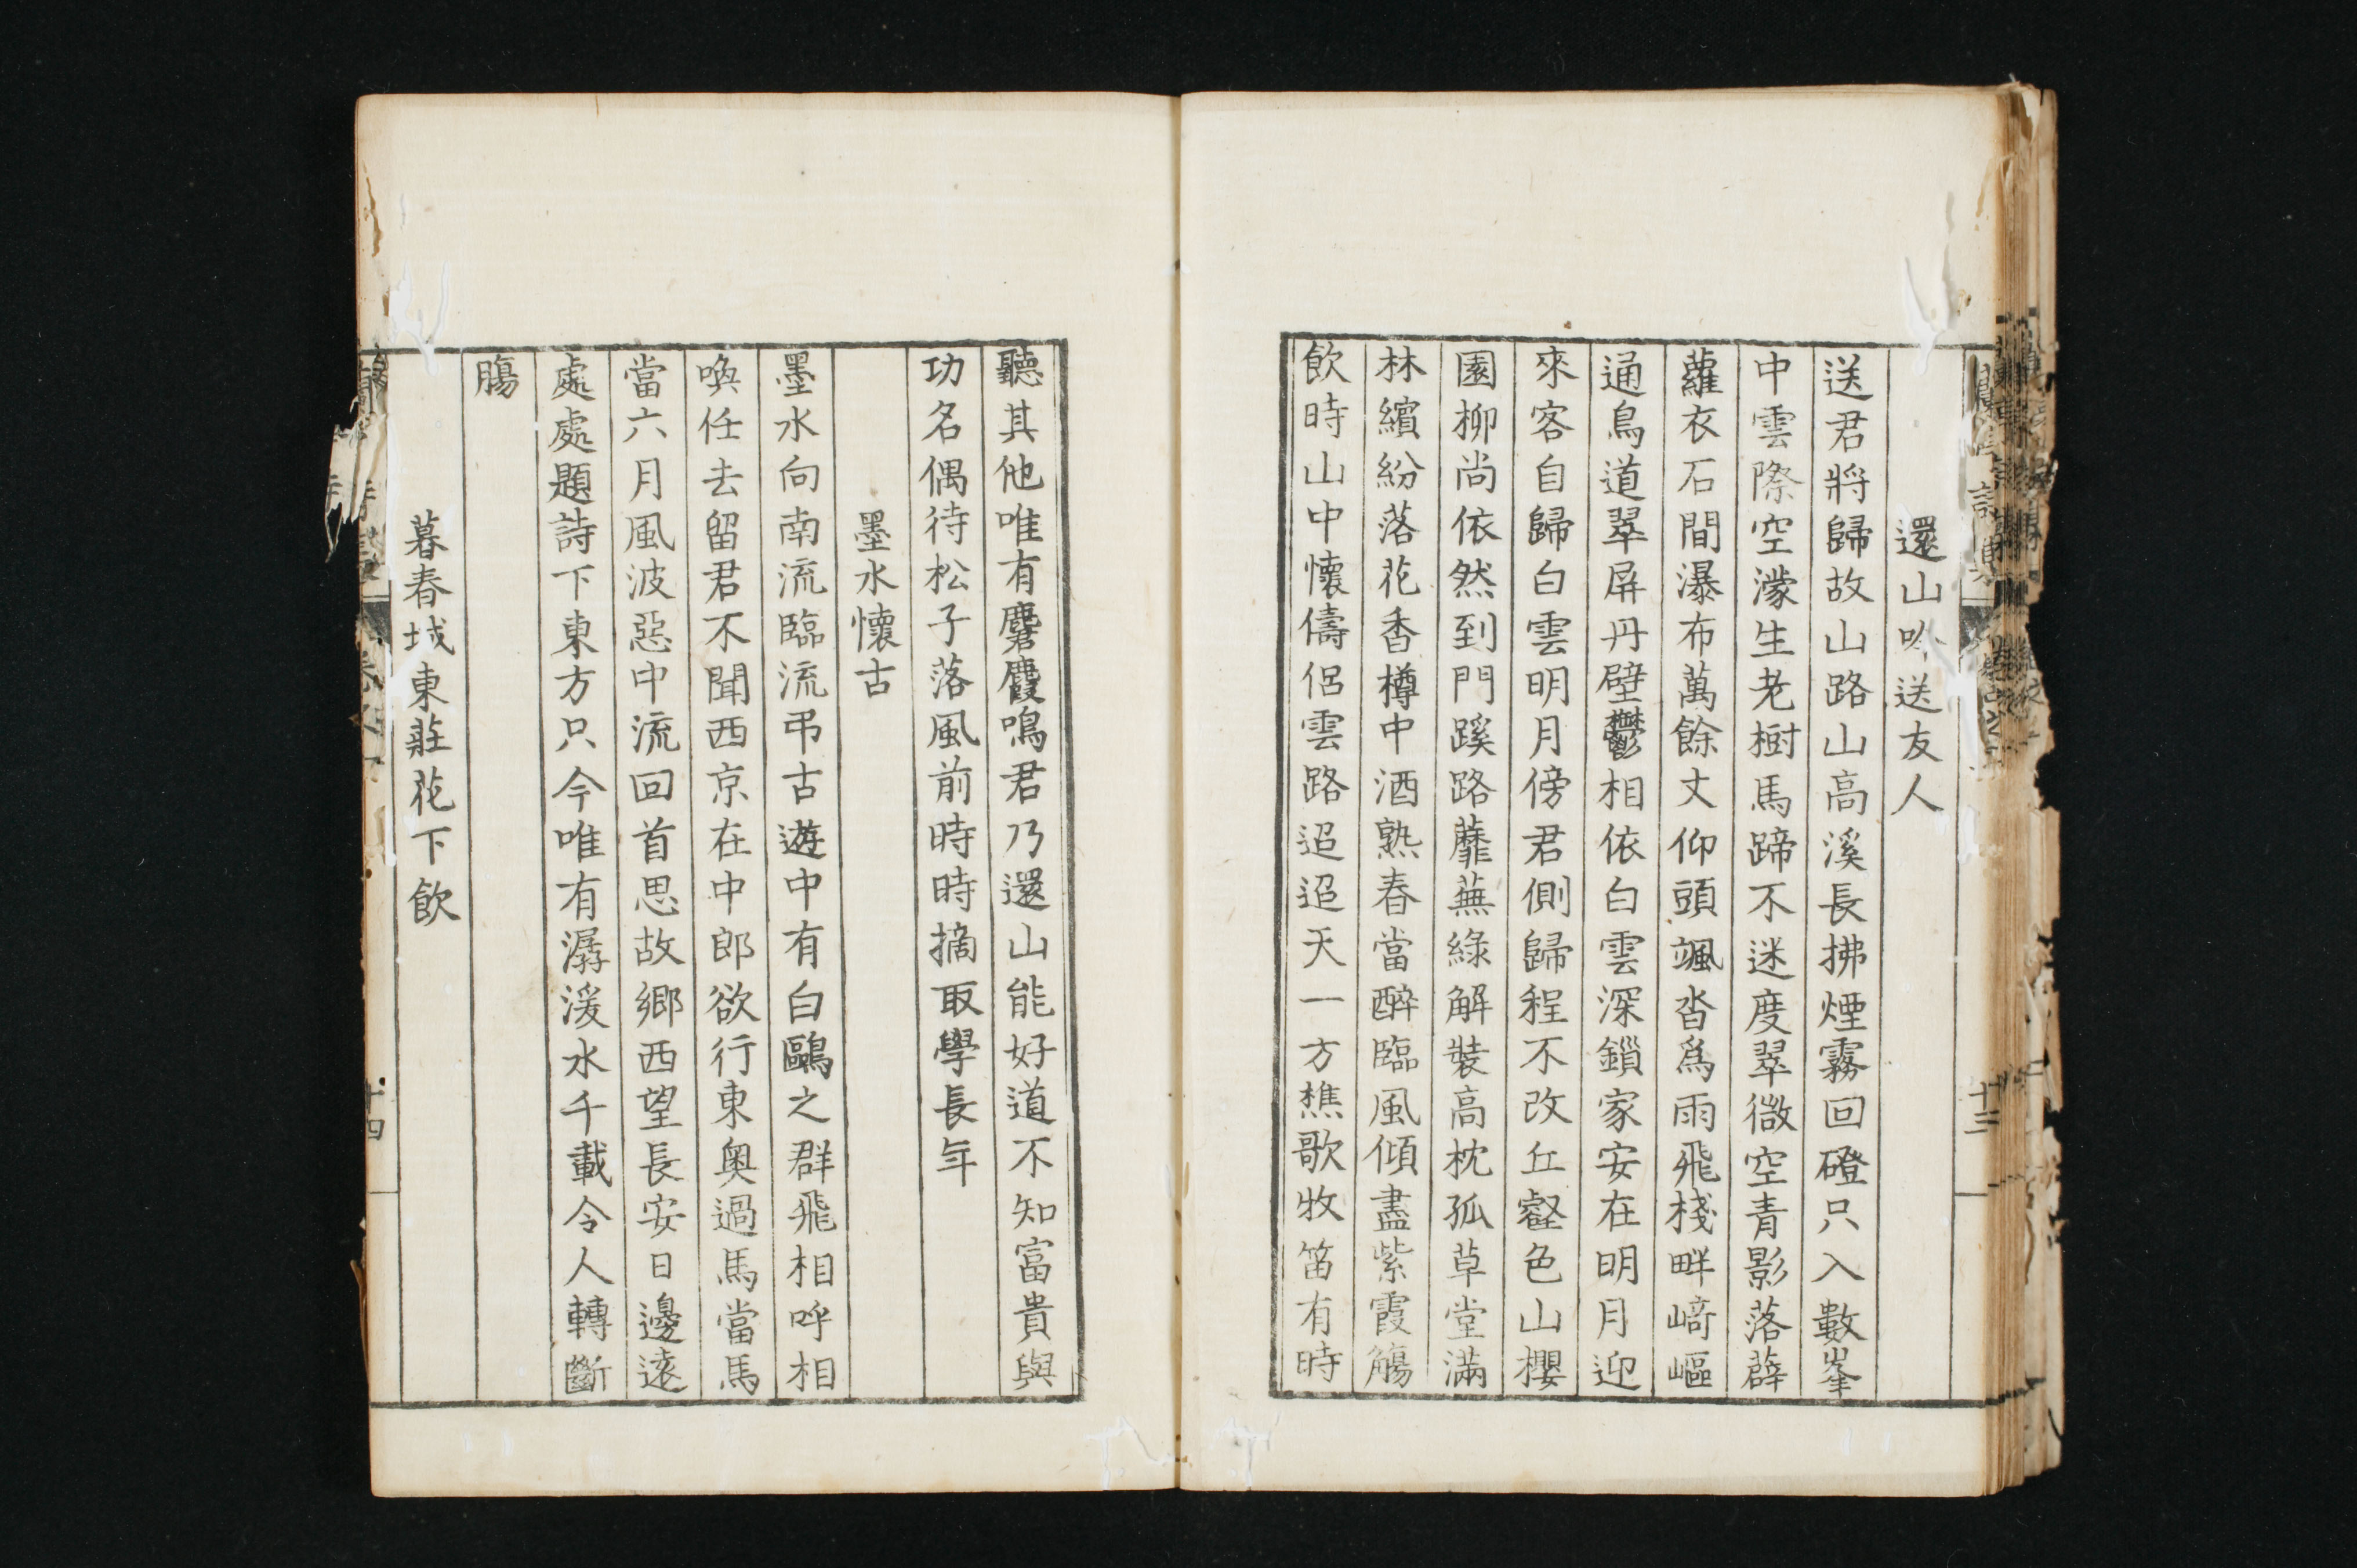 還山吟送友人
送君將歸故山路山高溪長拂煙霧回磴只入數峯
中雲際空濛生老樹馬蹄不迷度翠微空青影落薜
蘿衣石間瀑布萬餘丈仰頭颯沓爲雨飛棧畔崎嶇
通鳥道翠屏丹壁鬱相依白雲深鎖家安在明月迎
來客自歸白雲明月傍君側歸程不改丘壑色山櫻
園柳尚依然到門蹊路蘼蕪綠解裝高枕孤草堂滿
林繽紛落花香樽中酒熟春當醉臨風傾盡紫霞觴
飲時山中懷儔侶雲路迢迢天一方樵歌牧笛有時
十三
聽其他唯有麏麚鳴君乃還山能好道不知富貴與
功名偶待松子落風前時時摘取學長年
墨水懷古
墨水向南流臨流弔古遊中有白鷗之群飛相呼相
喚任去留君不聞西京在中郎欲行東奧過馬當馬
當六月風波惡中流回首思故鄉西望長安日邊遠
處處題詩下東方只今唯有潺湲水千載令人轉斷
腸
暮春城東莊花下飲
十四